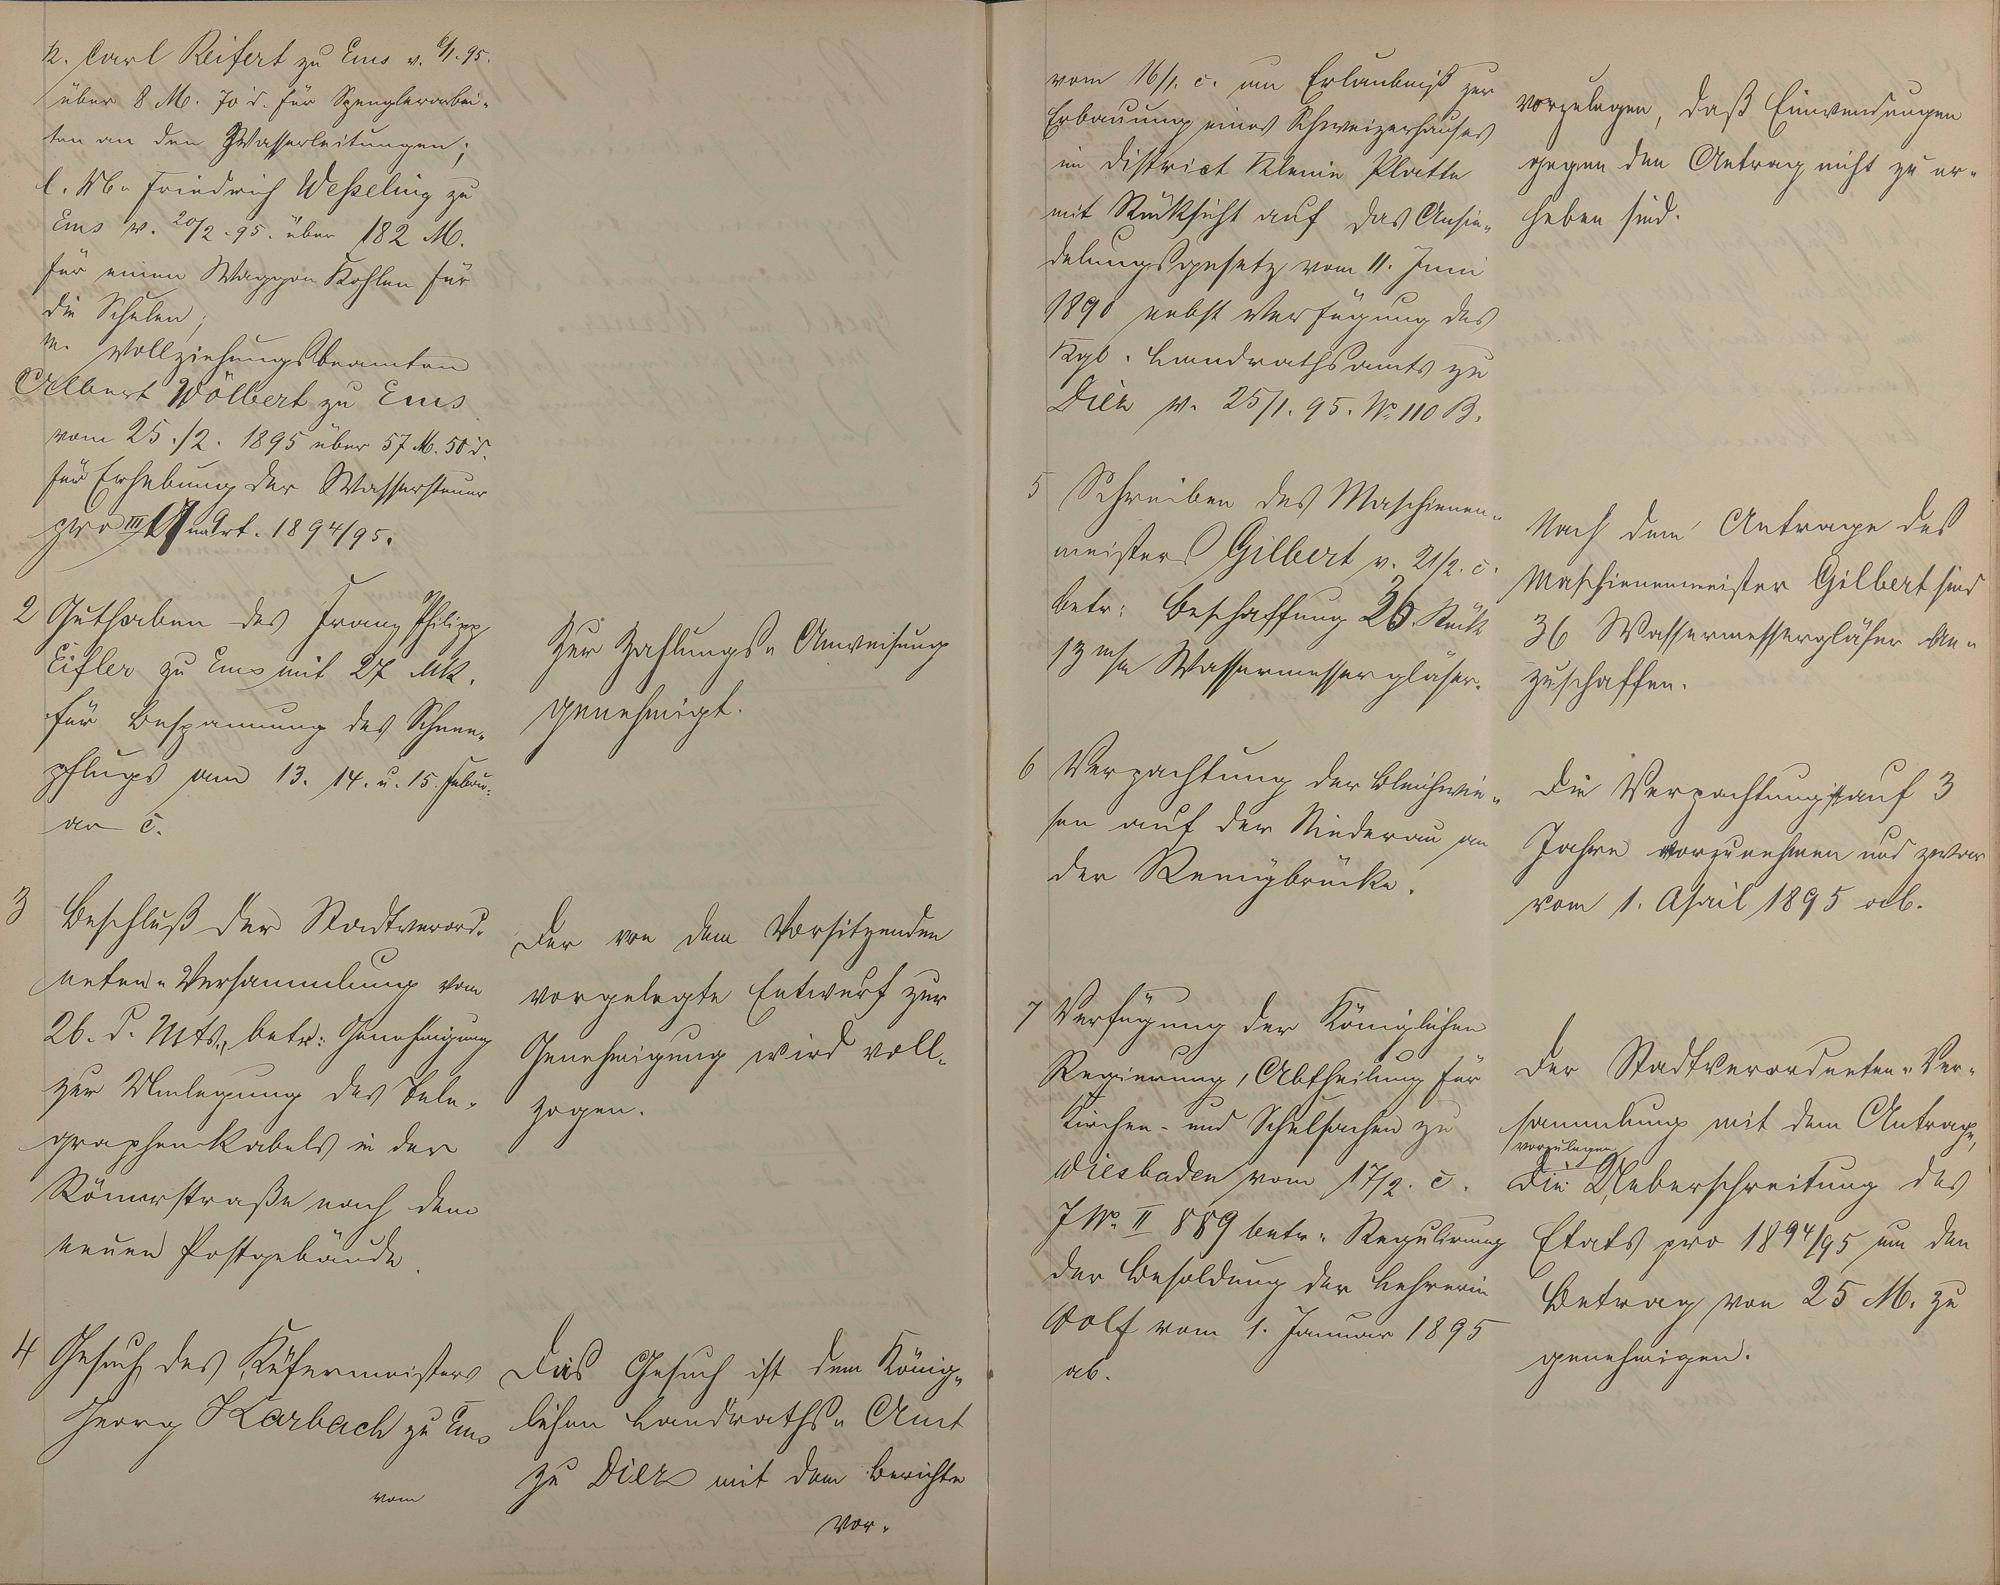 k. Carl Reifert zu Ems v. 6/1. 95.
über 8 M. 70 d. für Spenglerarbei-
ten an den Wasserleitungen;
l. Wb. Friedrich Wesseling zu
Ems v. 20/2. 95. über 182 M.
für einen Waggon Kohlen für
die Schulen;
m. Vollziehungsbeamten
Albert Wölbert zu Ems
vom 25./2. 1895 über 57 M. 50 d.
für Erhebung der Wassersteuer
pro III Quart. 1894/95.
2 Guthaben des Franz Philipp
Eifler zu Ems mit 27 Mk.
für Bespannung des Schnee-
pflugs am 13. 14. u. 15. Febru-
ar c.
Zur Zahlungs-Anweisung
genehmigt.
3 Beschluß der Stadtverord-
neten-Versammlung vom
26. d. Mts., betr: Genehmigung
zur Umlegung des Tele-
graphenkabels in der
Römerstraße nach dem
neuen Postgebäude.
Der von dem Vorsitzenden
vorgelegte Entwurf zur
Genehmigung wird voll-
zogen.
4 Gesuch des Küfermeisters
Georg Karbach zu Ems
vom
Das Gesuch ist dem König-
lichen Landraths-Amt
zu Diez mit dem Berichte
vor-
vom 16/1. c. um Erlaubniß zur
Erbauung eines Schweizerhauses
im District Kleine Platte
mit Rücksicht auf das Ansie-
delungsgesetz vom 11. Juni
1890 nebst Verfügung des
Kgl. Landrathsamts zu
Diez v. 25/1. 95. No 110 B.
vorzulegen, daß Einwendungen
gegen den Antrag nicht zu er-
heben sind.
5 Schreiben des Maschienen-
meisters Gilbert v. 21/2. c.
betr: Beschaffung 36 Stück
13 m/m Wassermessergläser.
Nach dem Antrage des
Maschienenmeister Gilbert sind
36 Wassermessergläser an-
zuschaffen.
6 Verpachtung der Bleichwie-
sen auf der Niederau an
der Remybrücke.
Die Verpachtung ist auf 3
Jahre vorzunehmen und zwar
vom 1. April 1895 ab.
7 Verfügung der Königlichen
Regierung, Abtheilung für
Kirchen- und Schulsachen zu
Wiesbaden vom 17/2. c.
J No II 889 betr. Regulirung
der Besoldung der Lehrerin
Wolf vom 1. Januar 1895
ab.
Der Stadtverordneten-Ver-
sammlung mit dem Antrage,
vorzulegen
die Ueberschreitung des
Etats pro 1894/95 um den
Betrag von 25 M. zu
genehmigen.